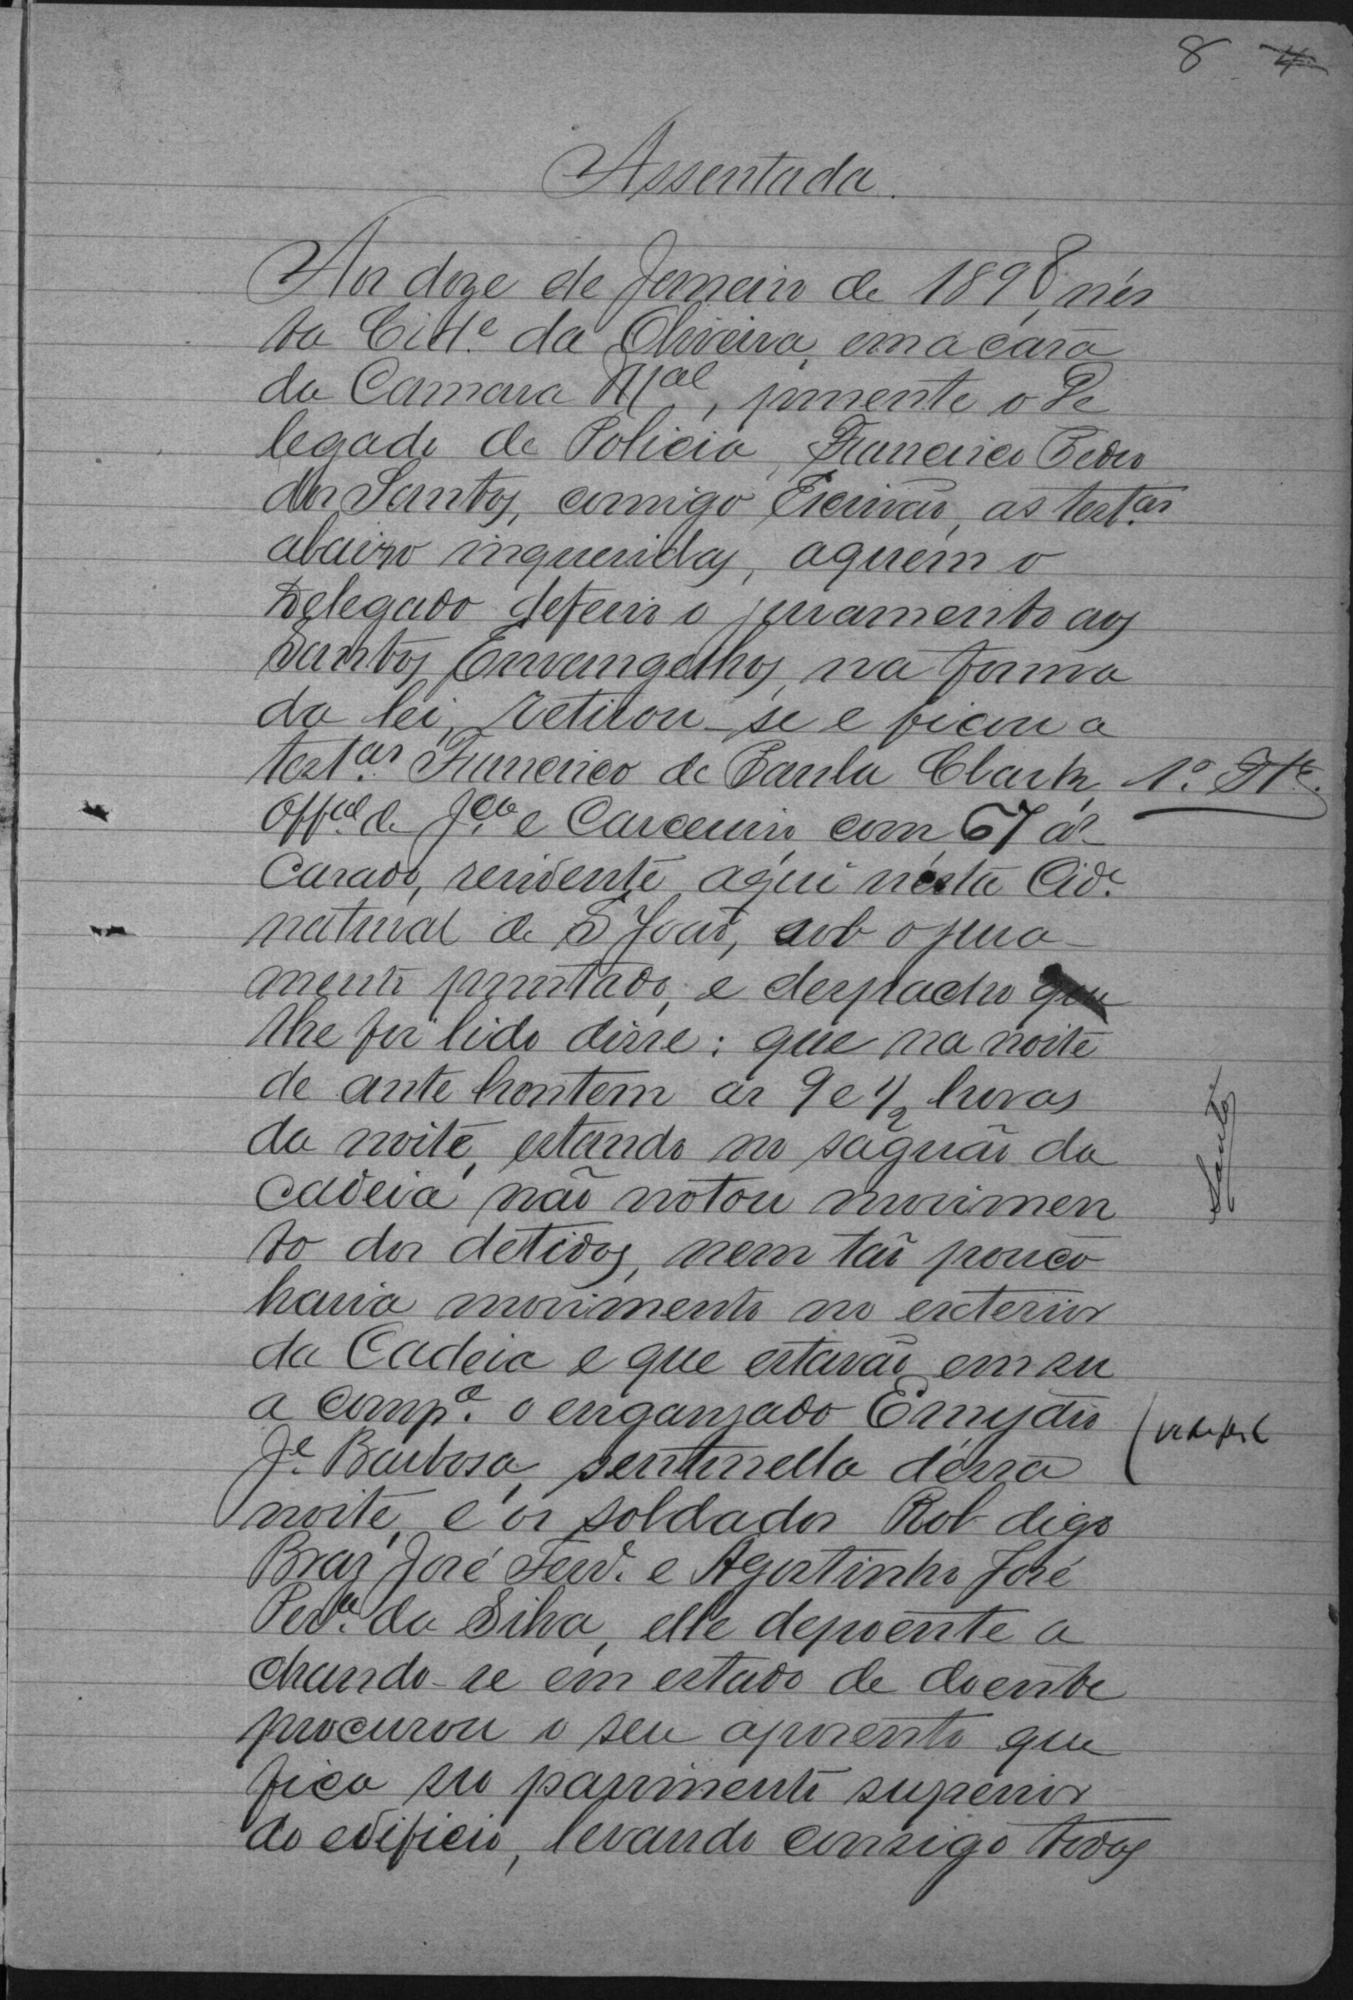 8 4
Assentada.
Aos doze de Janeiro de 1898, nés
ta Cid.e da Oliveira, em a casa
da Camara M.al, presente o De
legado de Policia, Francisco Pedro
dos Santos, comigo Escrivão, as test.as
abaixo inqueridas, aquem o
Delegado deferio o juramento aos
Santos Envangelhos, na forma
da lei, retirou-se e ficou a
test.as Francisco de Paula Clark, 1.º T.te
Off.cal de J.ça e Carcereiro, com 67 a.s
casado, residente aqui nésta Cid.e
natural de S João, sob o jura-
mento prestado, e despacho que
lhe foi lido disse: que na noite
de ante hontem as 9 e 1/2 horas
da noite, estando no saguão da
cadeia não notou movimen
to dos detidos, nem tão pouco
havia movimento no exterior
da Cadeia e que estavão em su
a comp.a o engajado Emydio
J.e Barbosa, sentinella déssa
noite, e os soldados Rob digo
Braz José Ferr.a e Agostinho José
Per.a da Silva, elle depoente a
chando-se em estado de doente
procurou o seu aposento que
fica no pavimento superior
do edificio, levando consigo todas
Santos